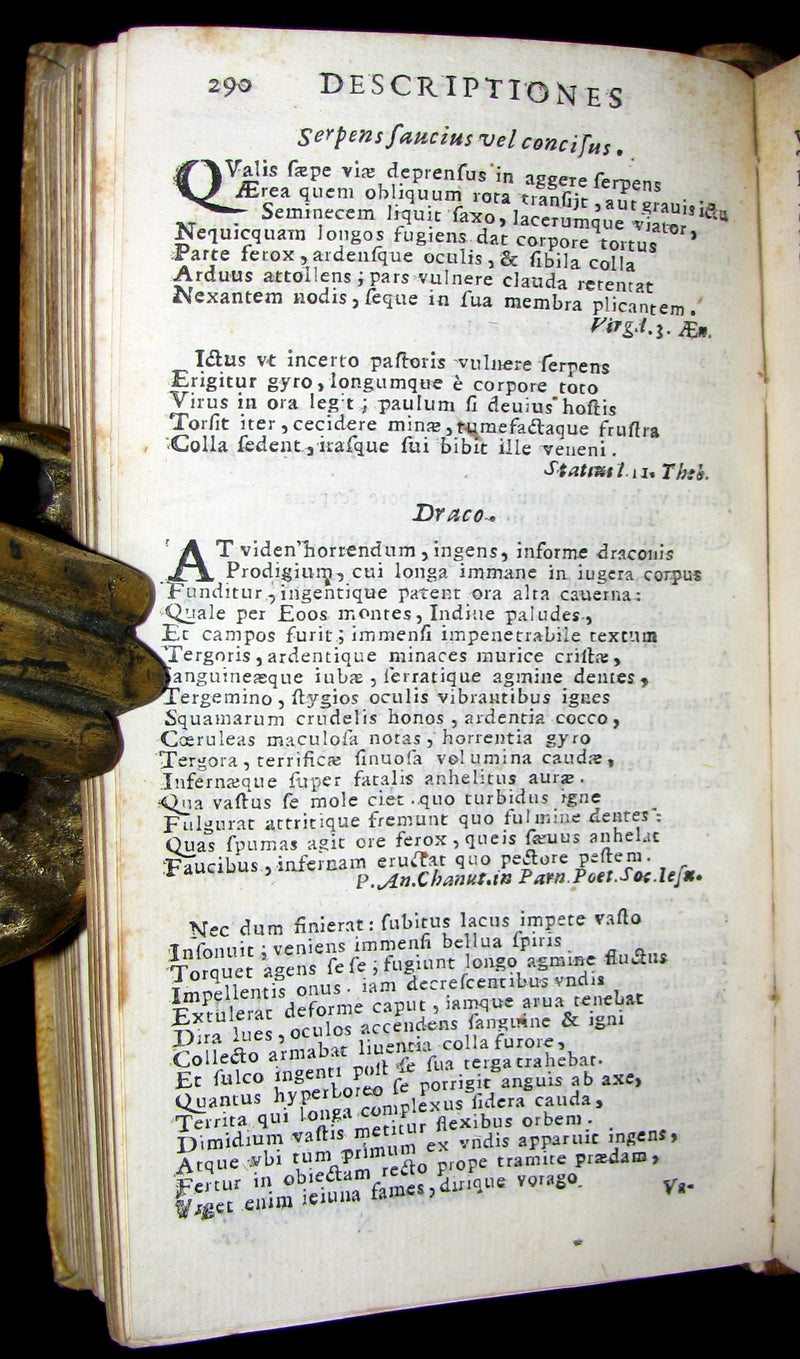 290 DESCRIPTIONES
Serpens ſaucius vel conciſus.
QValis ſæpe viæ deprenſus in aggere ſerpens
Ærea quem obliquum rota tranſijt, aut grauis ictu
Seminecem liquit ſaxo, lacerumque viator,
Nequicquam longos fugiens dat corpore tortus
Parte ferox, ardenſque oculis, & ſibila colla
Arduus attollens; pars vulnere clauda retentat
Nexantem nodis, ſeque in ſua membra plicantem.
Virg. l. 3. Æn.
Ictus vt incerto paſtoris vulnere ſerpens
Erigitur gyro, longumque è corpore toto
Virus in ora legit; paulum ſi deuius hoſtis
Torſit iter, cecidere minæ, tumefactaque fruſtra
Colla ſedent, iraſque ſui bibit ille veneni.
Statius l. 11. Theb.
Draco.
AT viden' horrendum, ingens, informe draconis
Prodigium, cui longa immane in iugera corpus
Funditur, ingentique patent ora alta cauerna:
Quale per Eoos montes, Indiue paludes,
Et campos furit; immenſi impenetrabile textum
Tergoris, ardentique minaces murice criſtæ,
Sanguineæque iubæ, ſerratique agmine dentes,
Tergemino, ſtygios oculis vibrantibus ignes
Squamarum crudelis honos, ardentia cocco,
Cœruleas maculoſa notas, horrentia gyro
Tergora, terrificæ ſinuoſa volumina caudæ,
Infernæque ſuper fatalis anhelitus auræ.
Qua vaſtus ſe mole ciet. quo turbidus igne
Fulgurat attritique fremunt quo fulmine dentes:
Quas ſpumas agit ore ferox, queis ſæuus anhelat
Faucibus, infernam eructat quo pectore peſtem.
P. An. Chanut. in Parn. Poet. Soc. Ieſu.
Nec dum finierat: ſubitus lacus impete vaſto
Inſonuit; veniens immenſi bellua ſpiris
Torquet agens ſeſe; fugiunt longo agmine fluctus
Impellentis onus. iam decreſcentibus vndis
Extulerat deforme caput, iamque arua tenebat
Dira lues, oculos accendens ſanguine & igni
Collecto armabat liuentia colla furore,
Et ſulco ingenti poſt ſe ſua terga trahebat.
Quantus hyperboreo ſe porrigit anguis ab axe,
Territa qui longa complexus ſidera cauda,
Dimidium vaſtis metitur flexibus orbem.
Atque vbi tum primum ex vndis apparuit ingens,
Fertur in obiectam recto prope tramite prædam,
Vrget enim ieiuna fames, dirique vorago.
Va-